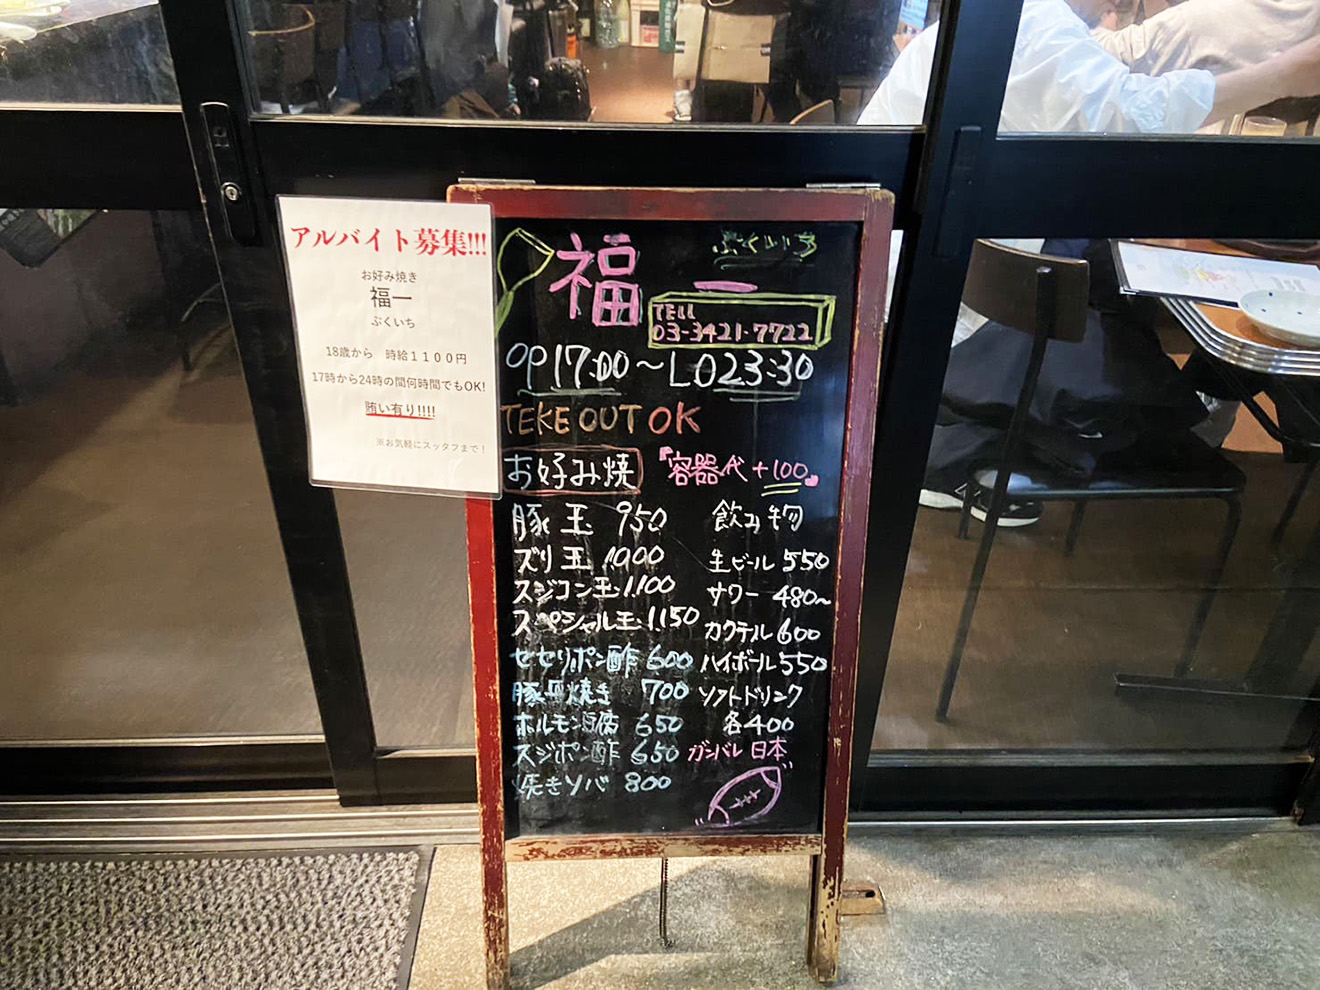 アルバイト募集!!!
お好み焼き
福一
ぷくいち
18歳から 時給1100円
17時から24時の間何時間でもOK!
賄い有り!!!!
※お気軽にスッタフまで！
福一
ぷくいち
TELL
03-3421-7722
OP 17:00～LO23:30
TEKE OUT OK
お好み焼
『容器代+100』
豚玉 950
ズリ玉 1000
スジコン玉 1.100
スペシャル玉 1.150
セセリポン酢 600
豚平焼き 700
ホルモン 650
スジポン酢 650
焼きソバ 800
飲み物
生ビール 550
サワー 480~
カクテル 600
ハイボール 550
ソフトドリンク
各400
ガンバレ 日本